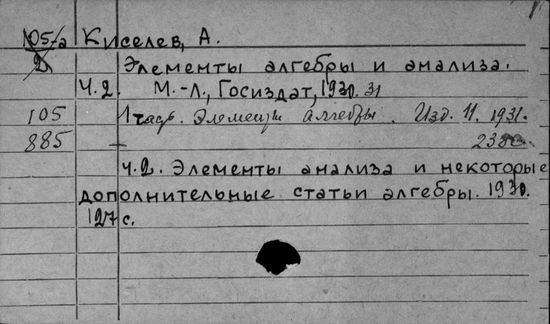 105/а Киселев, А.
2 Элементы алгебры и анализа.
Ч.2. М.-Л., Госиздат, 1930. 31
105 1 часть. Элементы алгебры. Изд. 11. 1931.
885
ч.2. Элементы анализа и некоторые
дополнительные статьи алгебры. 1930.
127 с.